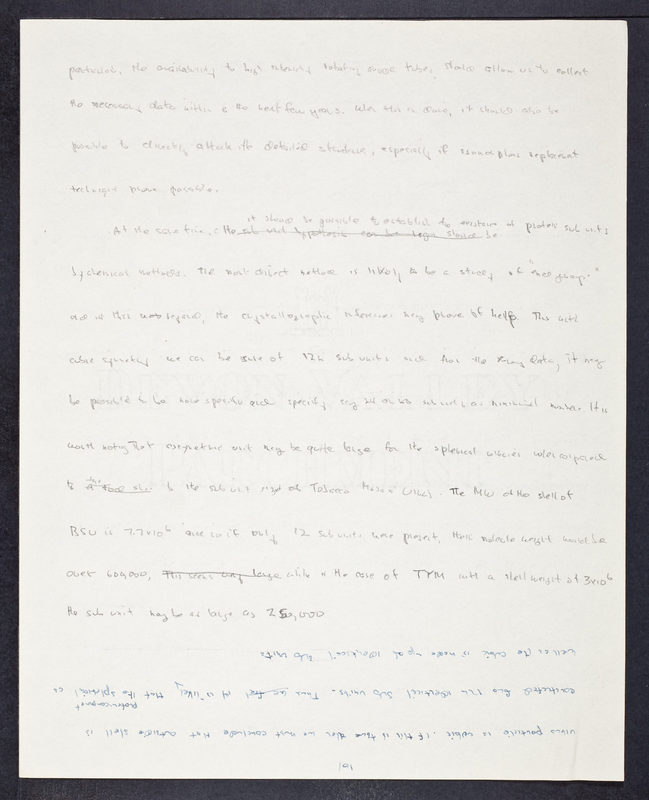 the availability to high intensity rotating anode tubes should allow us to collect
the necessary data within the next few years. When this is done, it should also be
possible to directly attack the detailed structure, especially if isomorphous replacement
techniques prove possible.
it should be possible to establish the existence of protein sub units
At the same time, the sub unit hypothesis can be
by chemical methods. The most direct method is likely to be a study of "end groups"
and in this regard, the crystallographic inferences may prove of help. Thus with
cubic symmetry we can be sure of 12n sub units and from the X-ray data, it may
be possible to be more specific and specify, say sub units as minimal number. It is
worth noting that asymmetric unit may be quite large for the spherical viruses when compared
the
to to the sub unit size of Tobacco Mosaic Virus. The MW of the shell of
BSV is 7.7x10⁶ and so if only 12 sub units were present, their molecular weight would be
over 600,000, This seems very large while in the case of TYM with a shell weight of 3x10⁶
the sub unit may be as large as 250,000
101
virus particle is cubic. If this is true then we must conclude that outside shell is
protein component
constructed from 12n identical sub units. Thus we feel it is likely that the spherical as
well as the cubic is made up of identical sub units